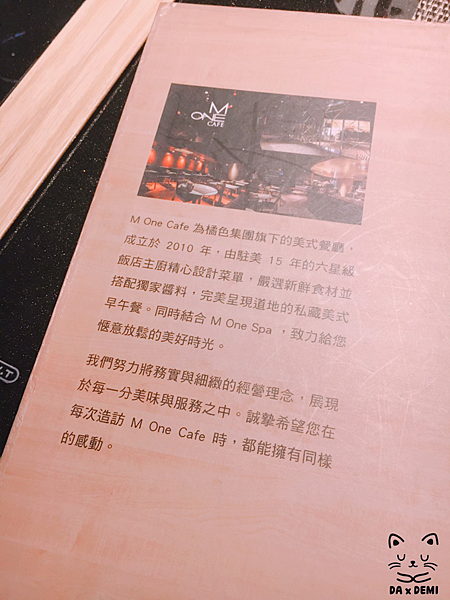 M
ONE
CAFE
M One Cafe 為橘色集團旗下的美式餐廳，
成立於 2010 年，由駐美 15 年的六星級
飯店主廚精心設計菜單，嚴選新鮮食材並
搭配獨家醬料，完美呈現道地的私藏美式
早午餐。同時結合 M One Spa ，致力給您
愜意放鬆的美好時光。
我們努力將務實與細緻的經營理念，展現
於每一分美味與服務之中。誠摯希望您在
每次造訪 M One Cafe 時，都能擁有同樣
的感動。
DA x DEMI